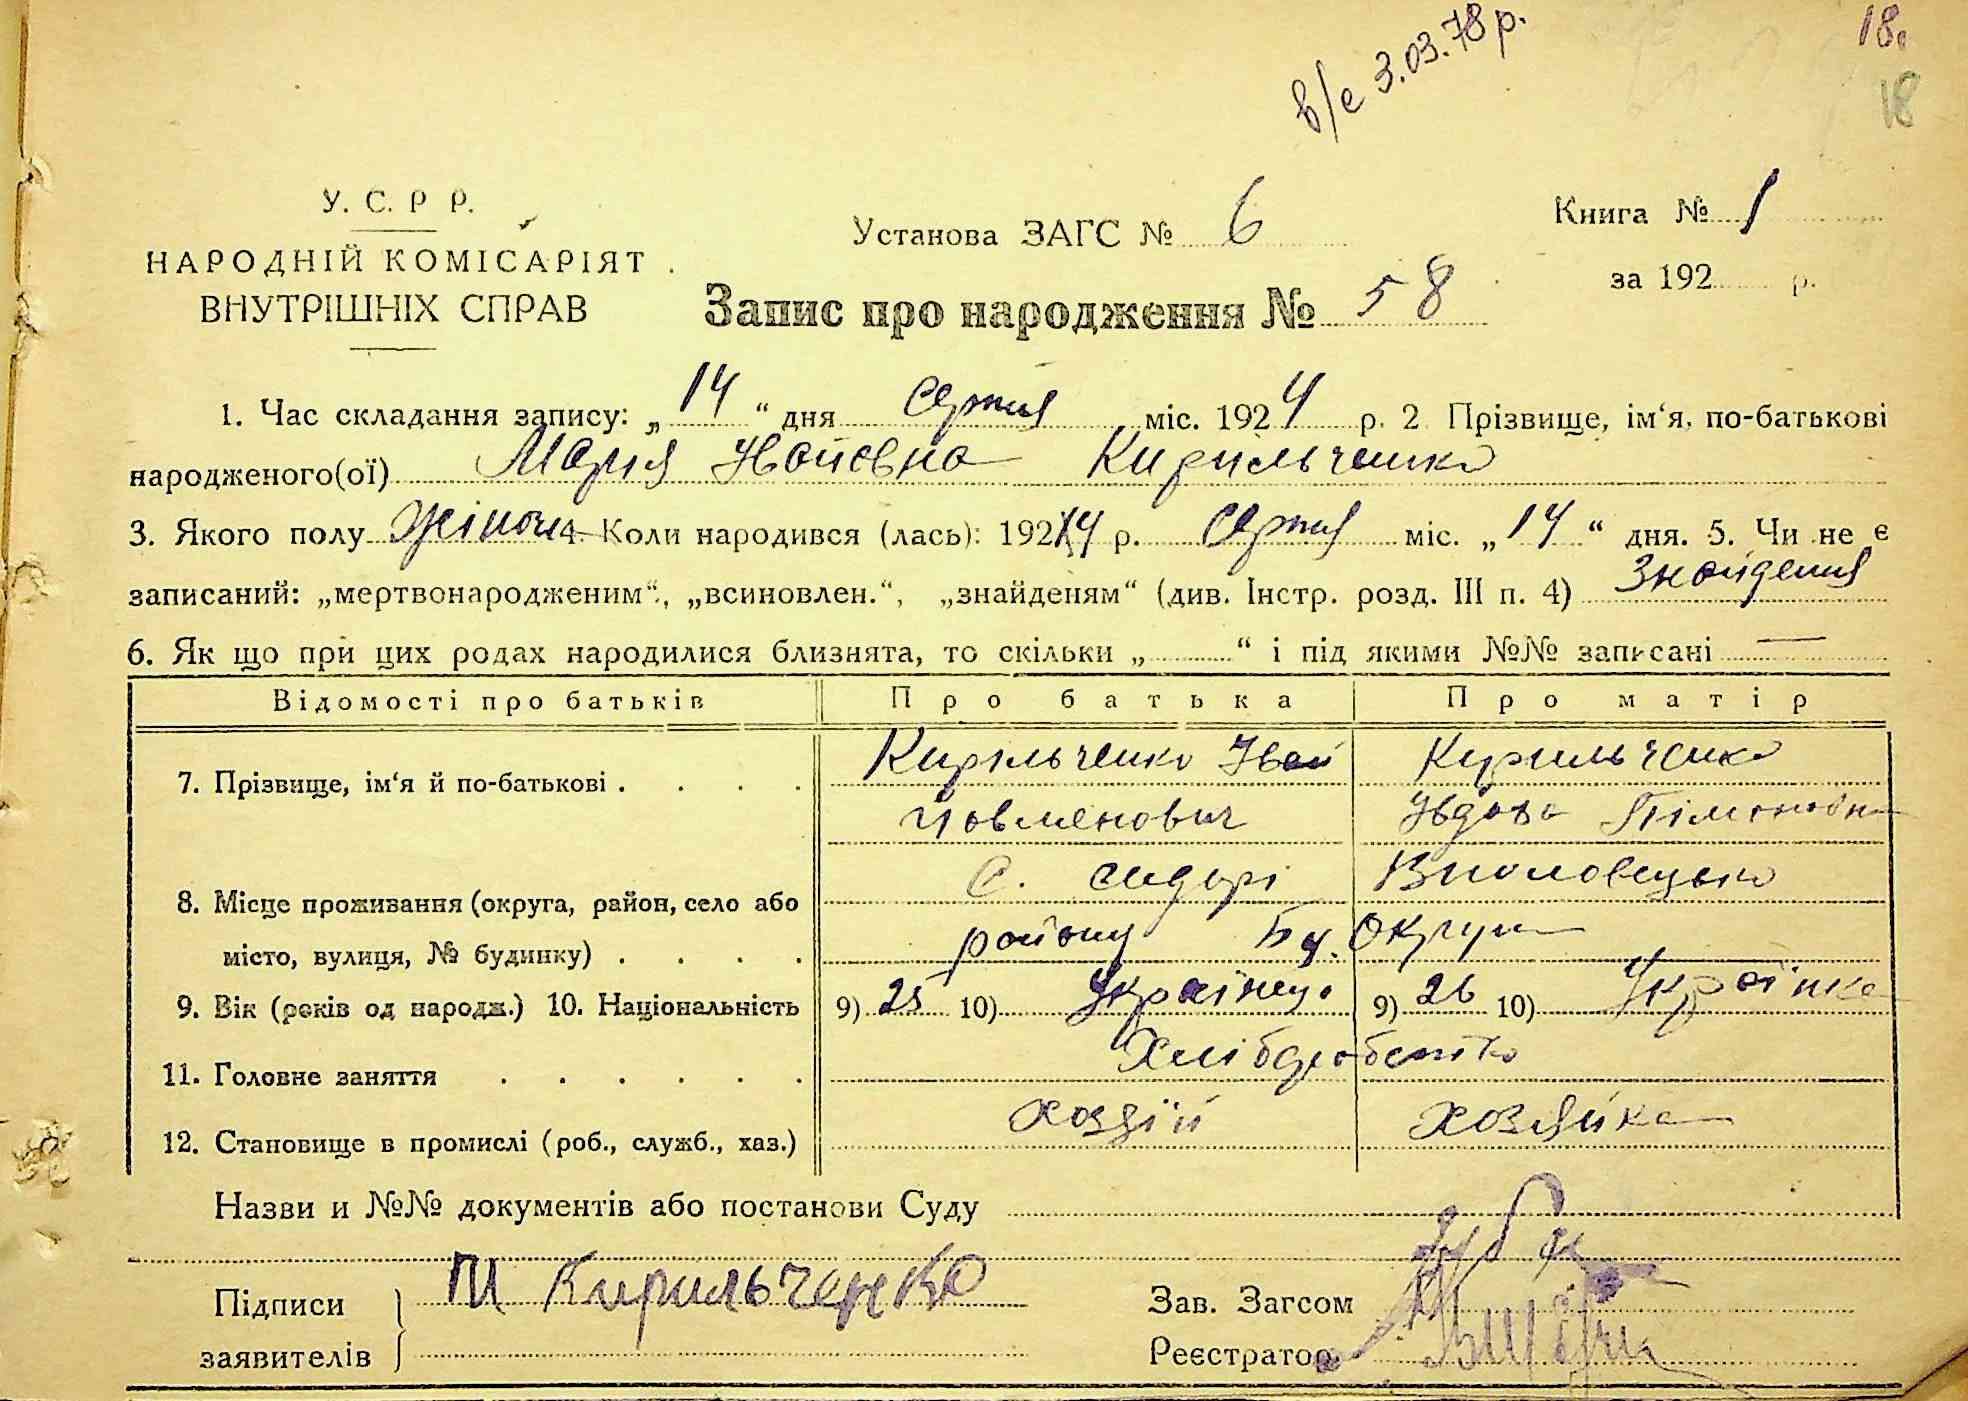 в/с 3.03.78 р.
18.
18
У. С. Р Р.
НАРОДНІЙ КОМІСАРІЯТ
ВНУТРІШНІХ СПРАВ
Установа ЗАГС № 6
Книга № 1
за 192 р.
Запис про народження № 58
1. Час складання запису: „14“ дня серпня міс. 1924 р. 2 Прізвище, ім‘я, по-батькові
народженого(ої) Мария Кирильченко
3. Якого полу жіноч 4. Коли народився (лась): 1924 р. серпня міс. „14“ дня. 5. Чи не є
записаний: „мертвонародженим“, „всиновлен.“, „знайденям“ (див. Інстр. розд. III п. 4) Знайденя
6. Як що при цих родах народилися близнята, то скільки „ “ і під якими №№ записані —
Відомості про батьків Про батька Про матір
7. Прізвище, ім‘я й по-батькові . . . . Кирильченко Иван Кирильченко
Пімоновна
8. Місце проживання (округа, район, село або С. сидорі
місто, вулиця, № будинку) . . . . району Бц. Округи
9. Вік (років од народж.) 10. Національність 9) 25 10) Українец 9) 26 10) Українка
11. Головне заняття . . . . . . Хліборобство
12. Становище в промислі (роб., служб., хаз.) хозяїн хозяйка
Назви и №№ документів або постанови Суду
Підписи
заявителів
Кирильченко
Зав. Загсом
Реєстратор